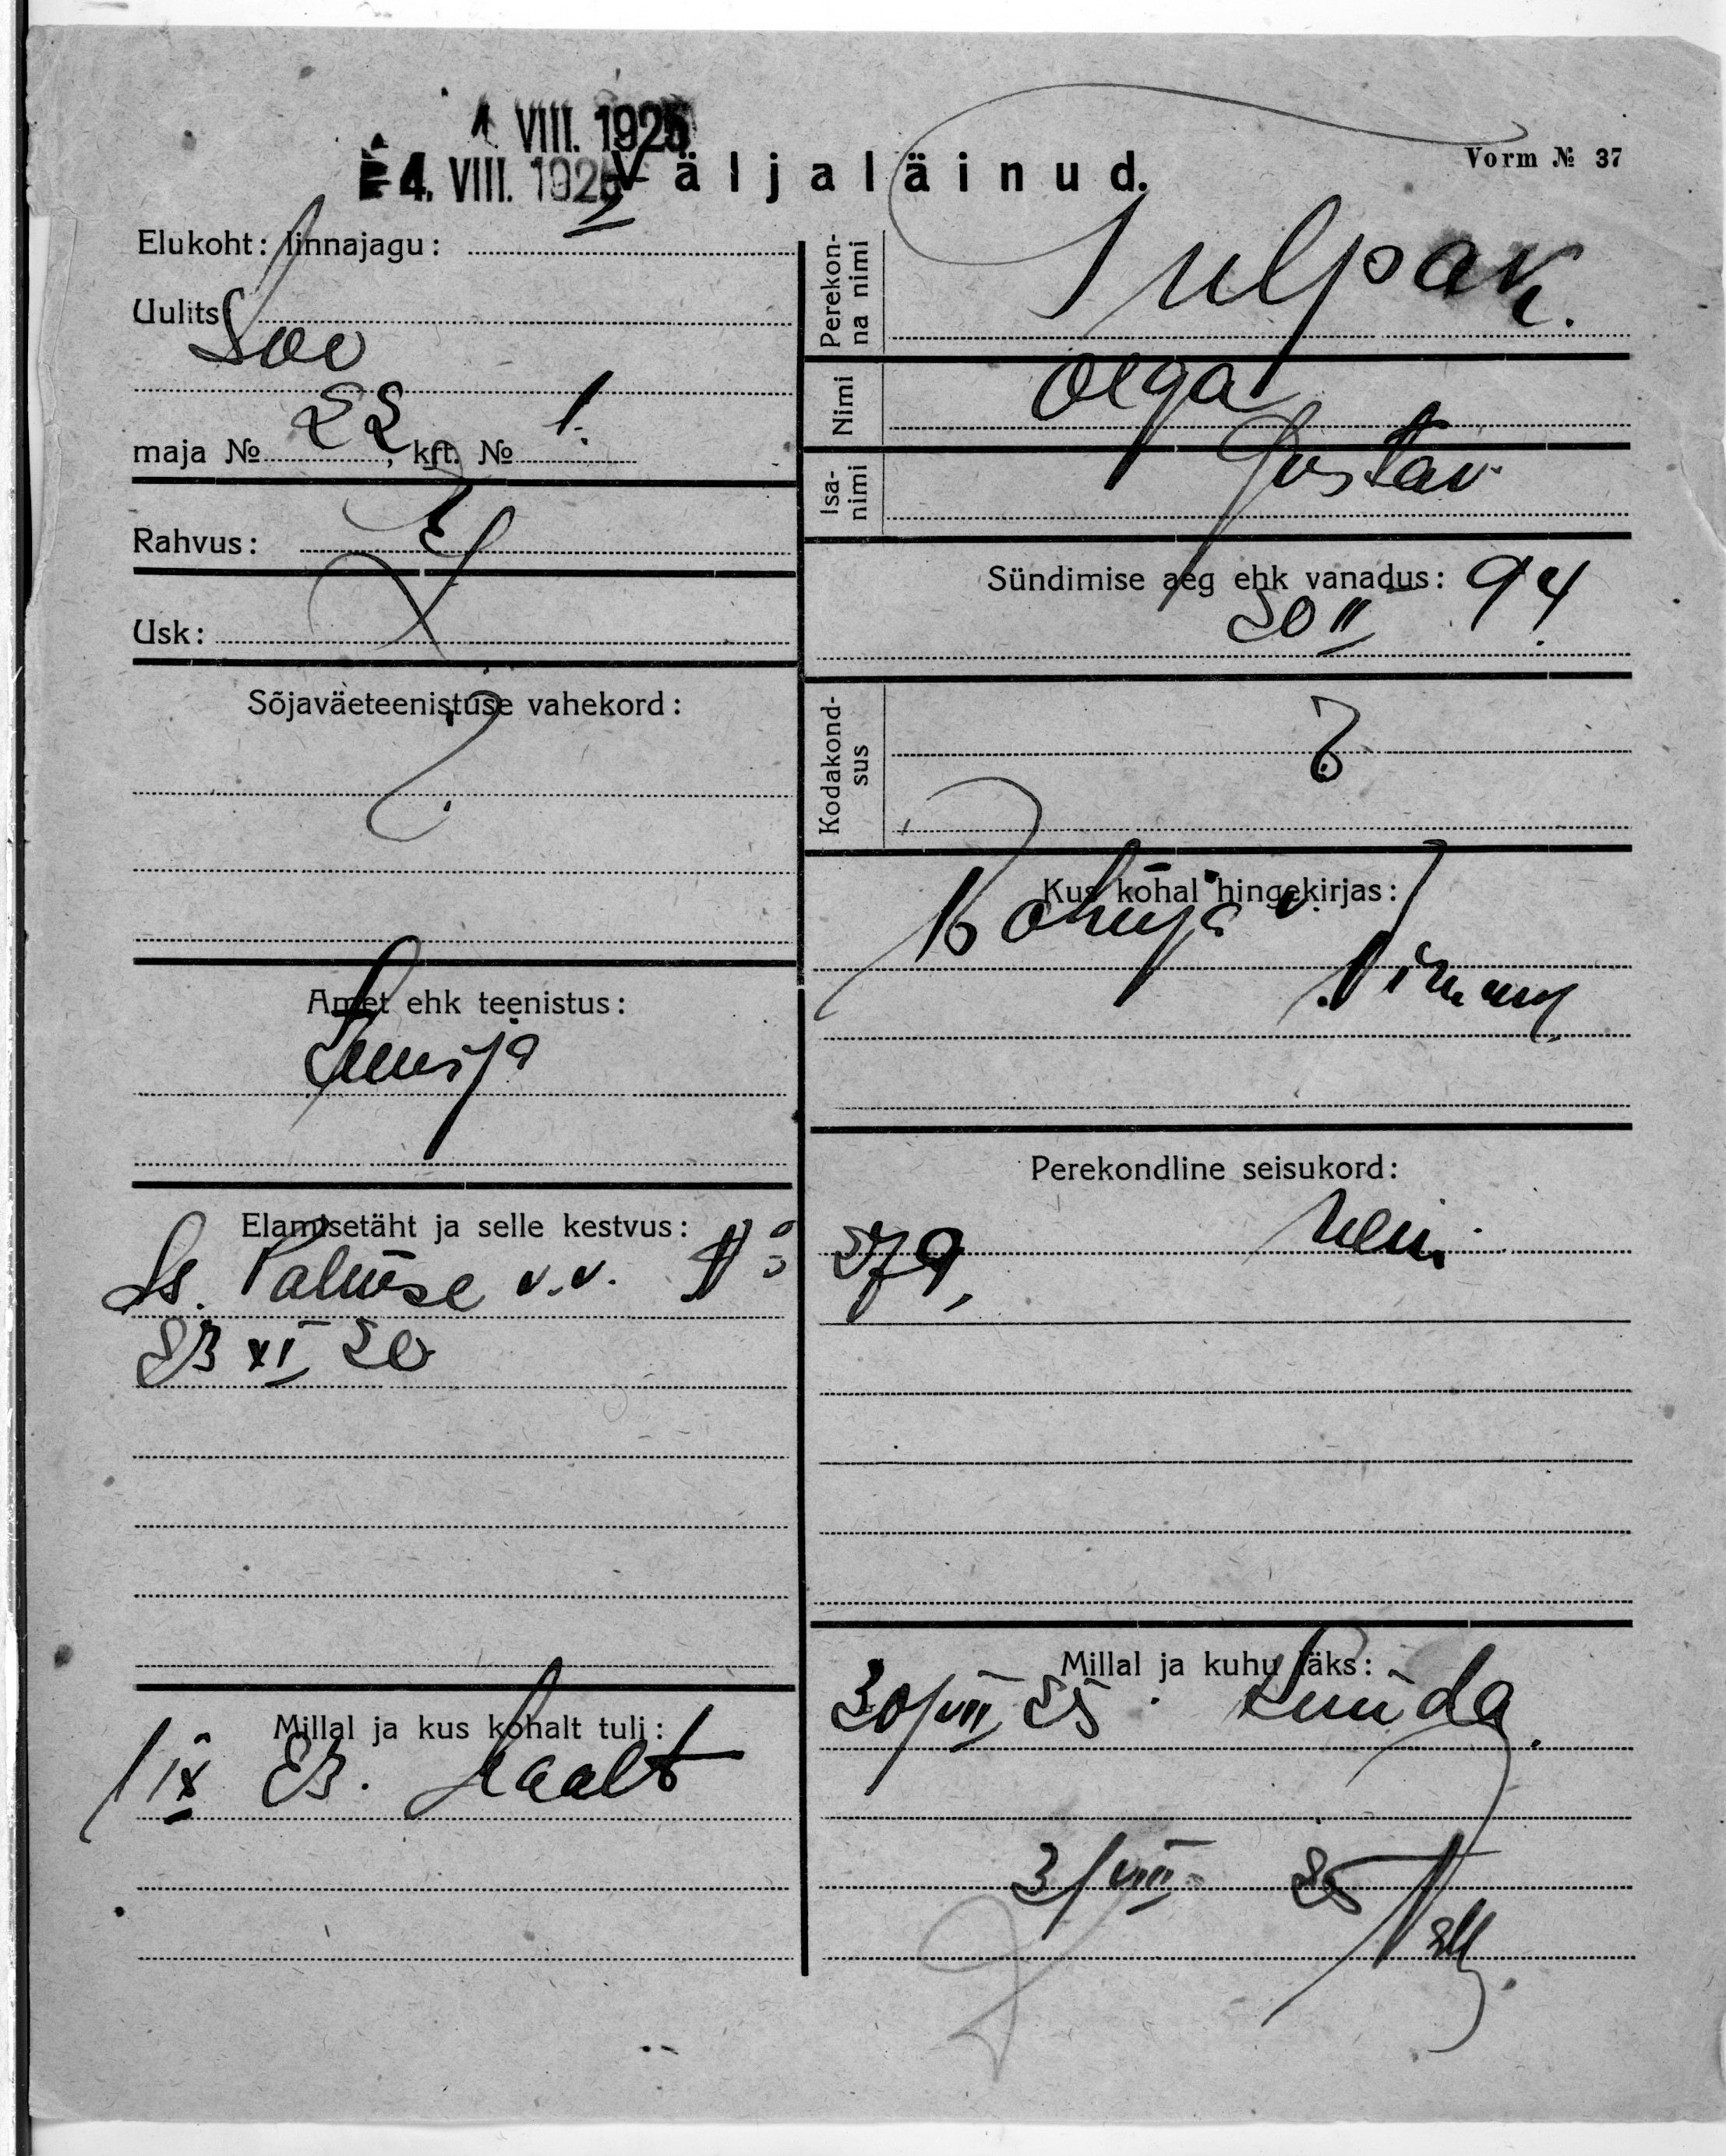 1 VIII. 1925
4. VIII. 1925
Väljaläinud.
Vorm № 37
Elukoht: linnajagu:
Uulits Soo
maja № 22, krt. № 1.
Rahvus: E
Usk:
Sõjaväeteenistuse vahekord:
Amet ehk teenistus:
Elamisetäht ja selle kestvus:
Is. Palmse v.v. №
23 XI 20
Millal ja kus kohalt tuli:
1 IX 23. maalt
Perekonna nimi
Tulpak.
Nimi
Olga
Isanimi
Gustav
Sündimise aeg ehk vanadus: 94
20 II
Kodakondsus
?
Kus kohal hingekirjas:
Kohuja v.
Virum.
Perekondline seisukord:
279,
Millal ja kuhu läks:
30/VII 25. Kunda.
3/VIII 25